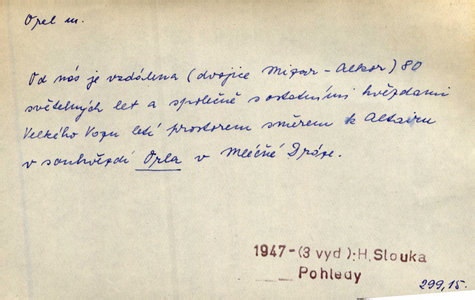 Opel m.
Od nás je vzdálena (dvojice Mizar - Alkor) 80
světelných let a společně s ostatními hvězdami
Velkého Vozu letí prostorem směrem k Altairu
v souhvězdí Orla v Mléčné Dráze.
1947-(3 vyd.): H. Slouka
Pohledy
299,15.